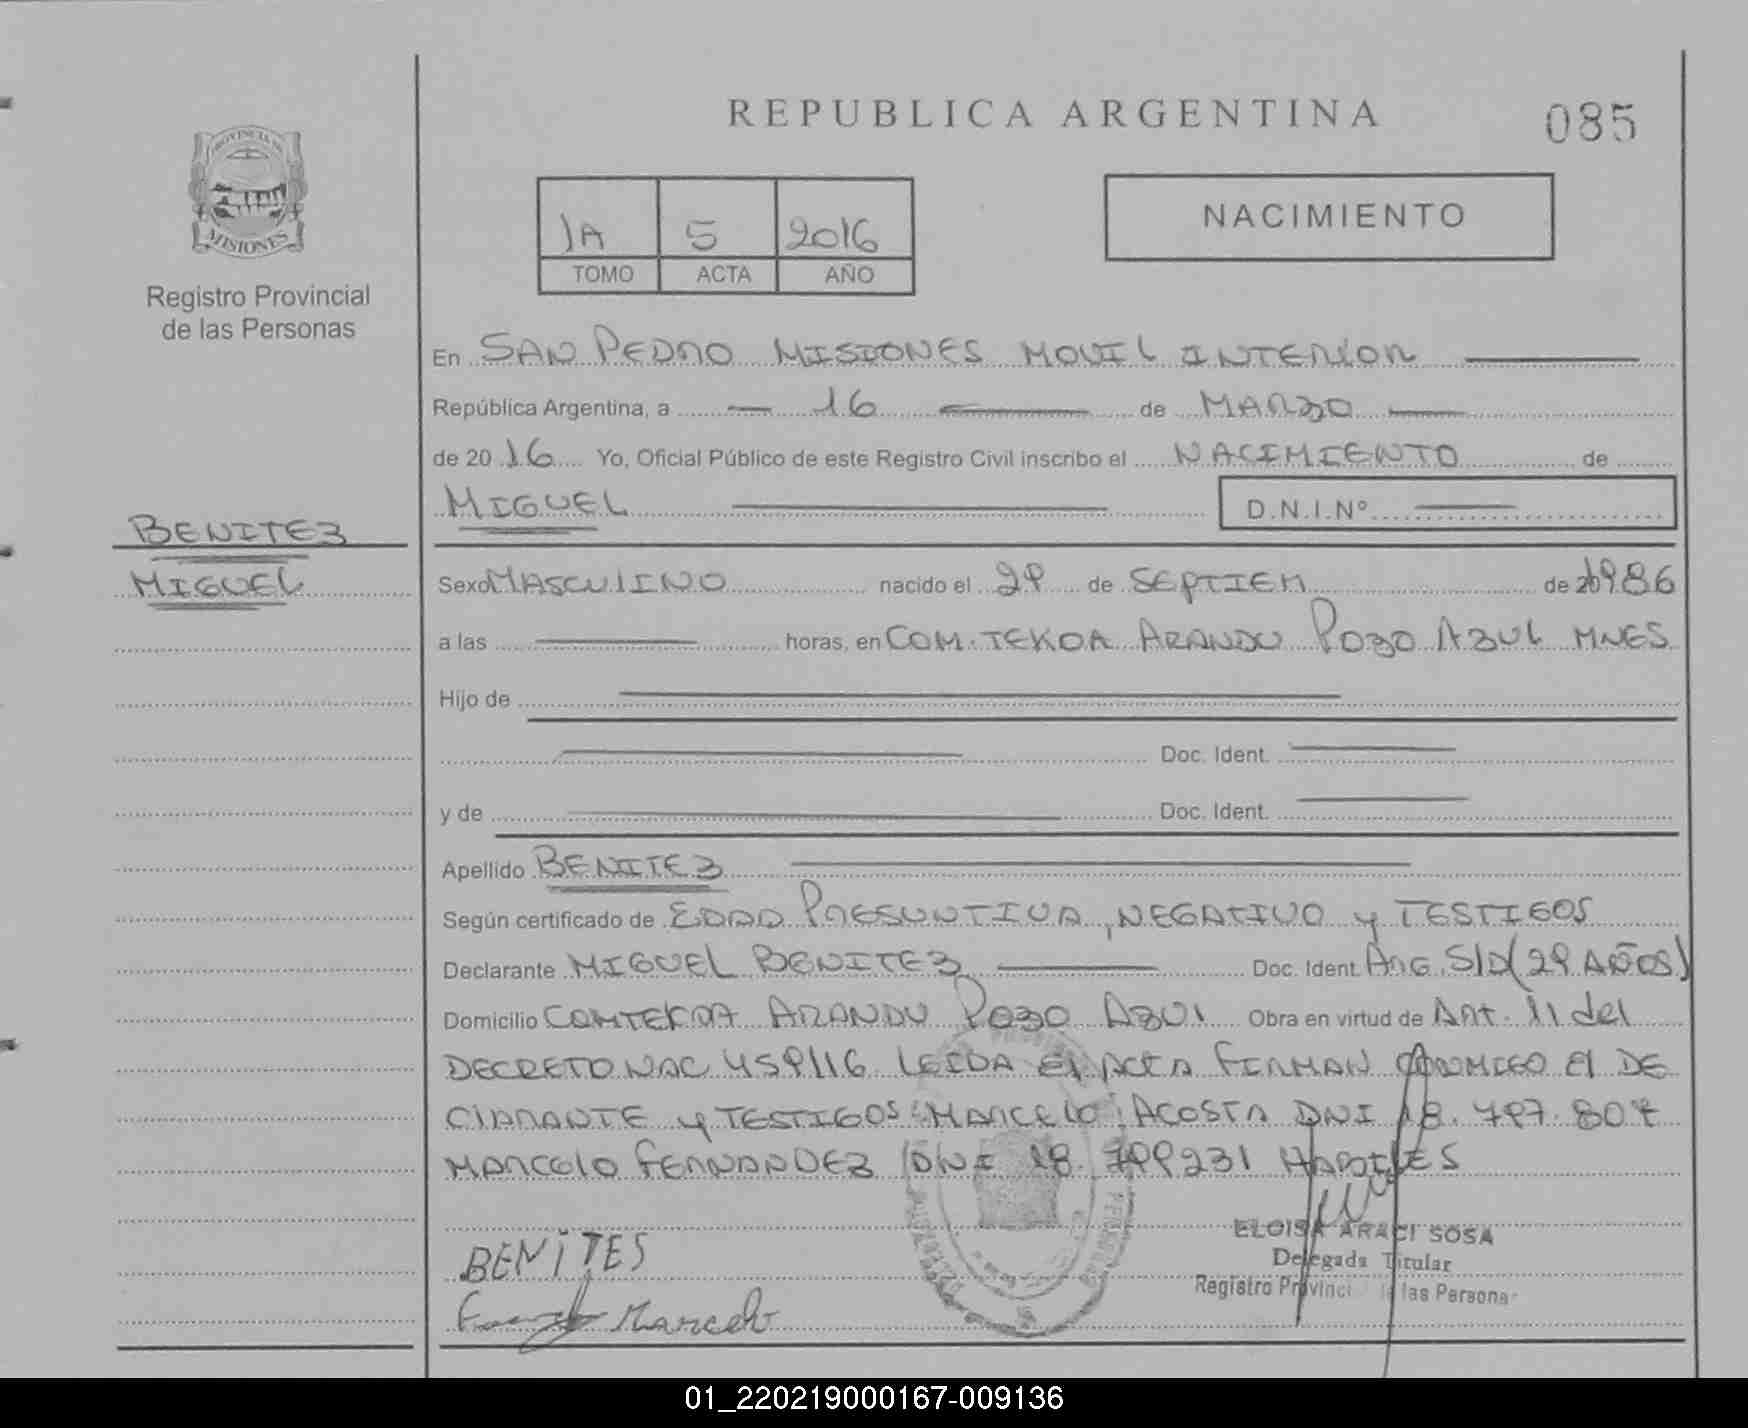 REPUBLICA ARGENTINA
085
PROVINCIA DE
MISIONES
Registro Provincial
de las Personas
1A 5 2016
TOMO ACTA AÑO
NACIMIENTO
En SAN PEDRO MISIONES MOVIL INTERIOR
República Argentina, a 16 de MARZO
de 2016 Yo, Oficial Público de este Registro Civil inscribo el NACIMIENTO de
MIGUEL D.N.I.Nº
BENITEZ
MIGUEL
Sexo MASCULINO nacido el 29 de SEPTIEM de 1986
a las horas, en COM. TEKOA ARANDU POZO AZUL MNES
Hijo de
Doc. Ident.
y de Doc. Ident.
Apellido BENITEZ
Según certificado de EDAD PRESUNTIVA, NEGATIVO y TESTIGOS
Declarante MIGUEL BENITEZ Doc. Ident. ARG. S/D (29 AÑOS)
Domicilio COMTEKOA ARANDU POZO AZUL Obra en virtud de Art. 11 del
DECRETO NAC 459/16 LEIDA El ACTA FIRMAN CONMIGO El DE
CLARANTE y TESTIGOS: MARCELO ACOSTA DNI 18.797.807
MARCELO FERNANDEZ DNI 18.799231 HABILES
BENiTES
Marcelo
ELOISA ARACI SOSA
Delegada Titular
Registro Provincial de las Personas
01_220219000167-009136